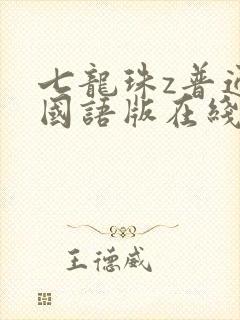 七龍珠z普通
國語版在綫
王德威